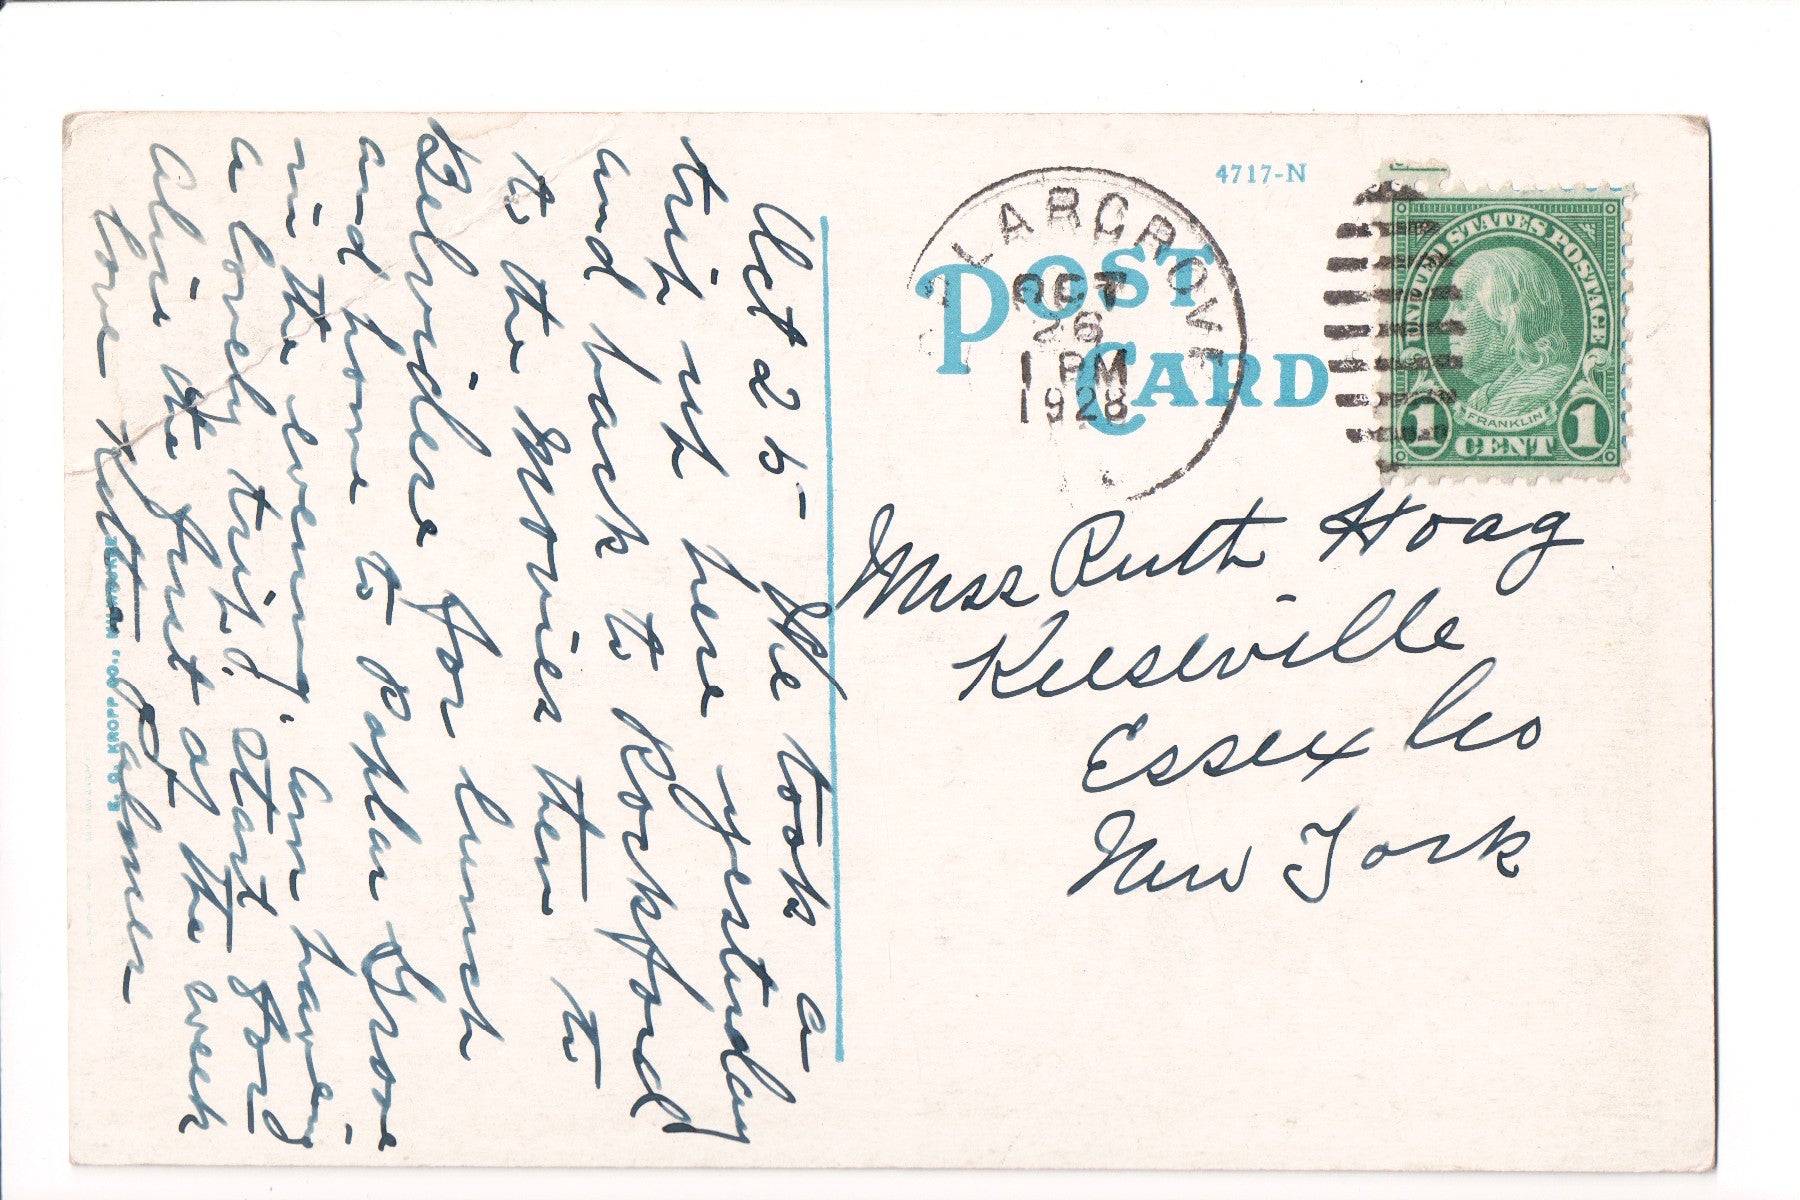 Oct 25 - We took a
trip up here yesterday
and back to Rockford
to the Movies then to
Belvidere for lunch
and home to Poplar Grove
in the evening. Am having
a lovely trip. Start for
Ohio the first of the week
Love Palmer
4717-N
POST CARD
LAR GROVE
OCT
26
1 PM
1928
UNITED STATES POSTAGE
FRANKLIN
1 CENT 1
Miss Ruth Hoag
Keeseville
Essex Co
New York
E. C. KROPP CO., MILWAUKEE